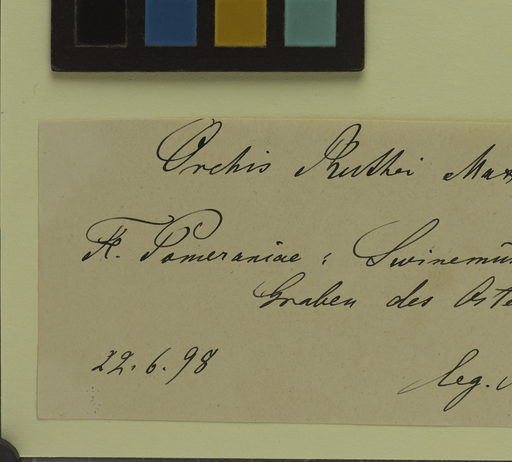 Orchis Ruthei Max
Fl. Pomeraniae: Swinemün
Graben des Oste
22.6.98 leg.